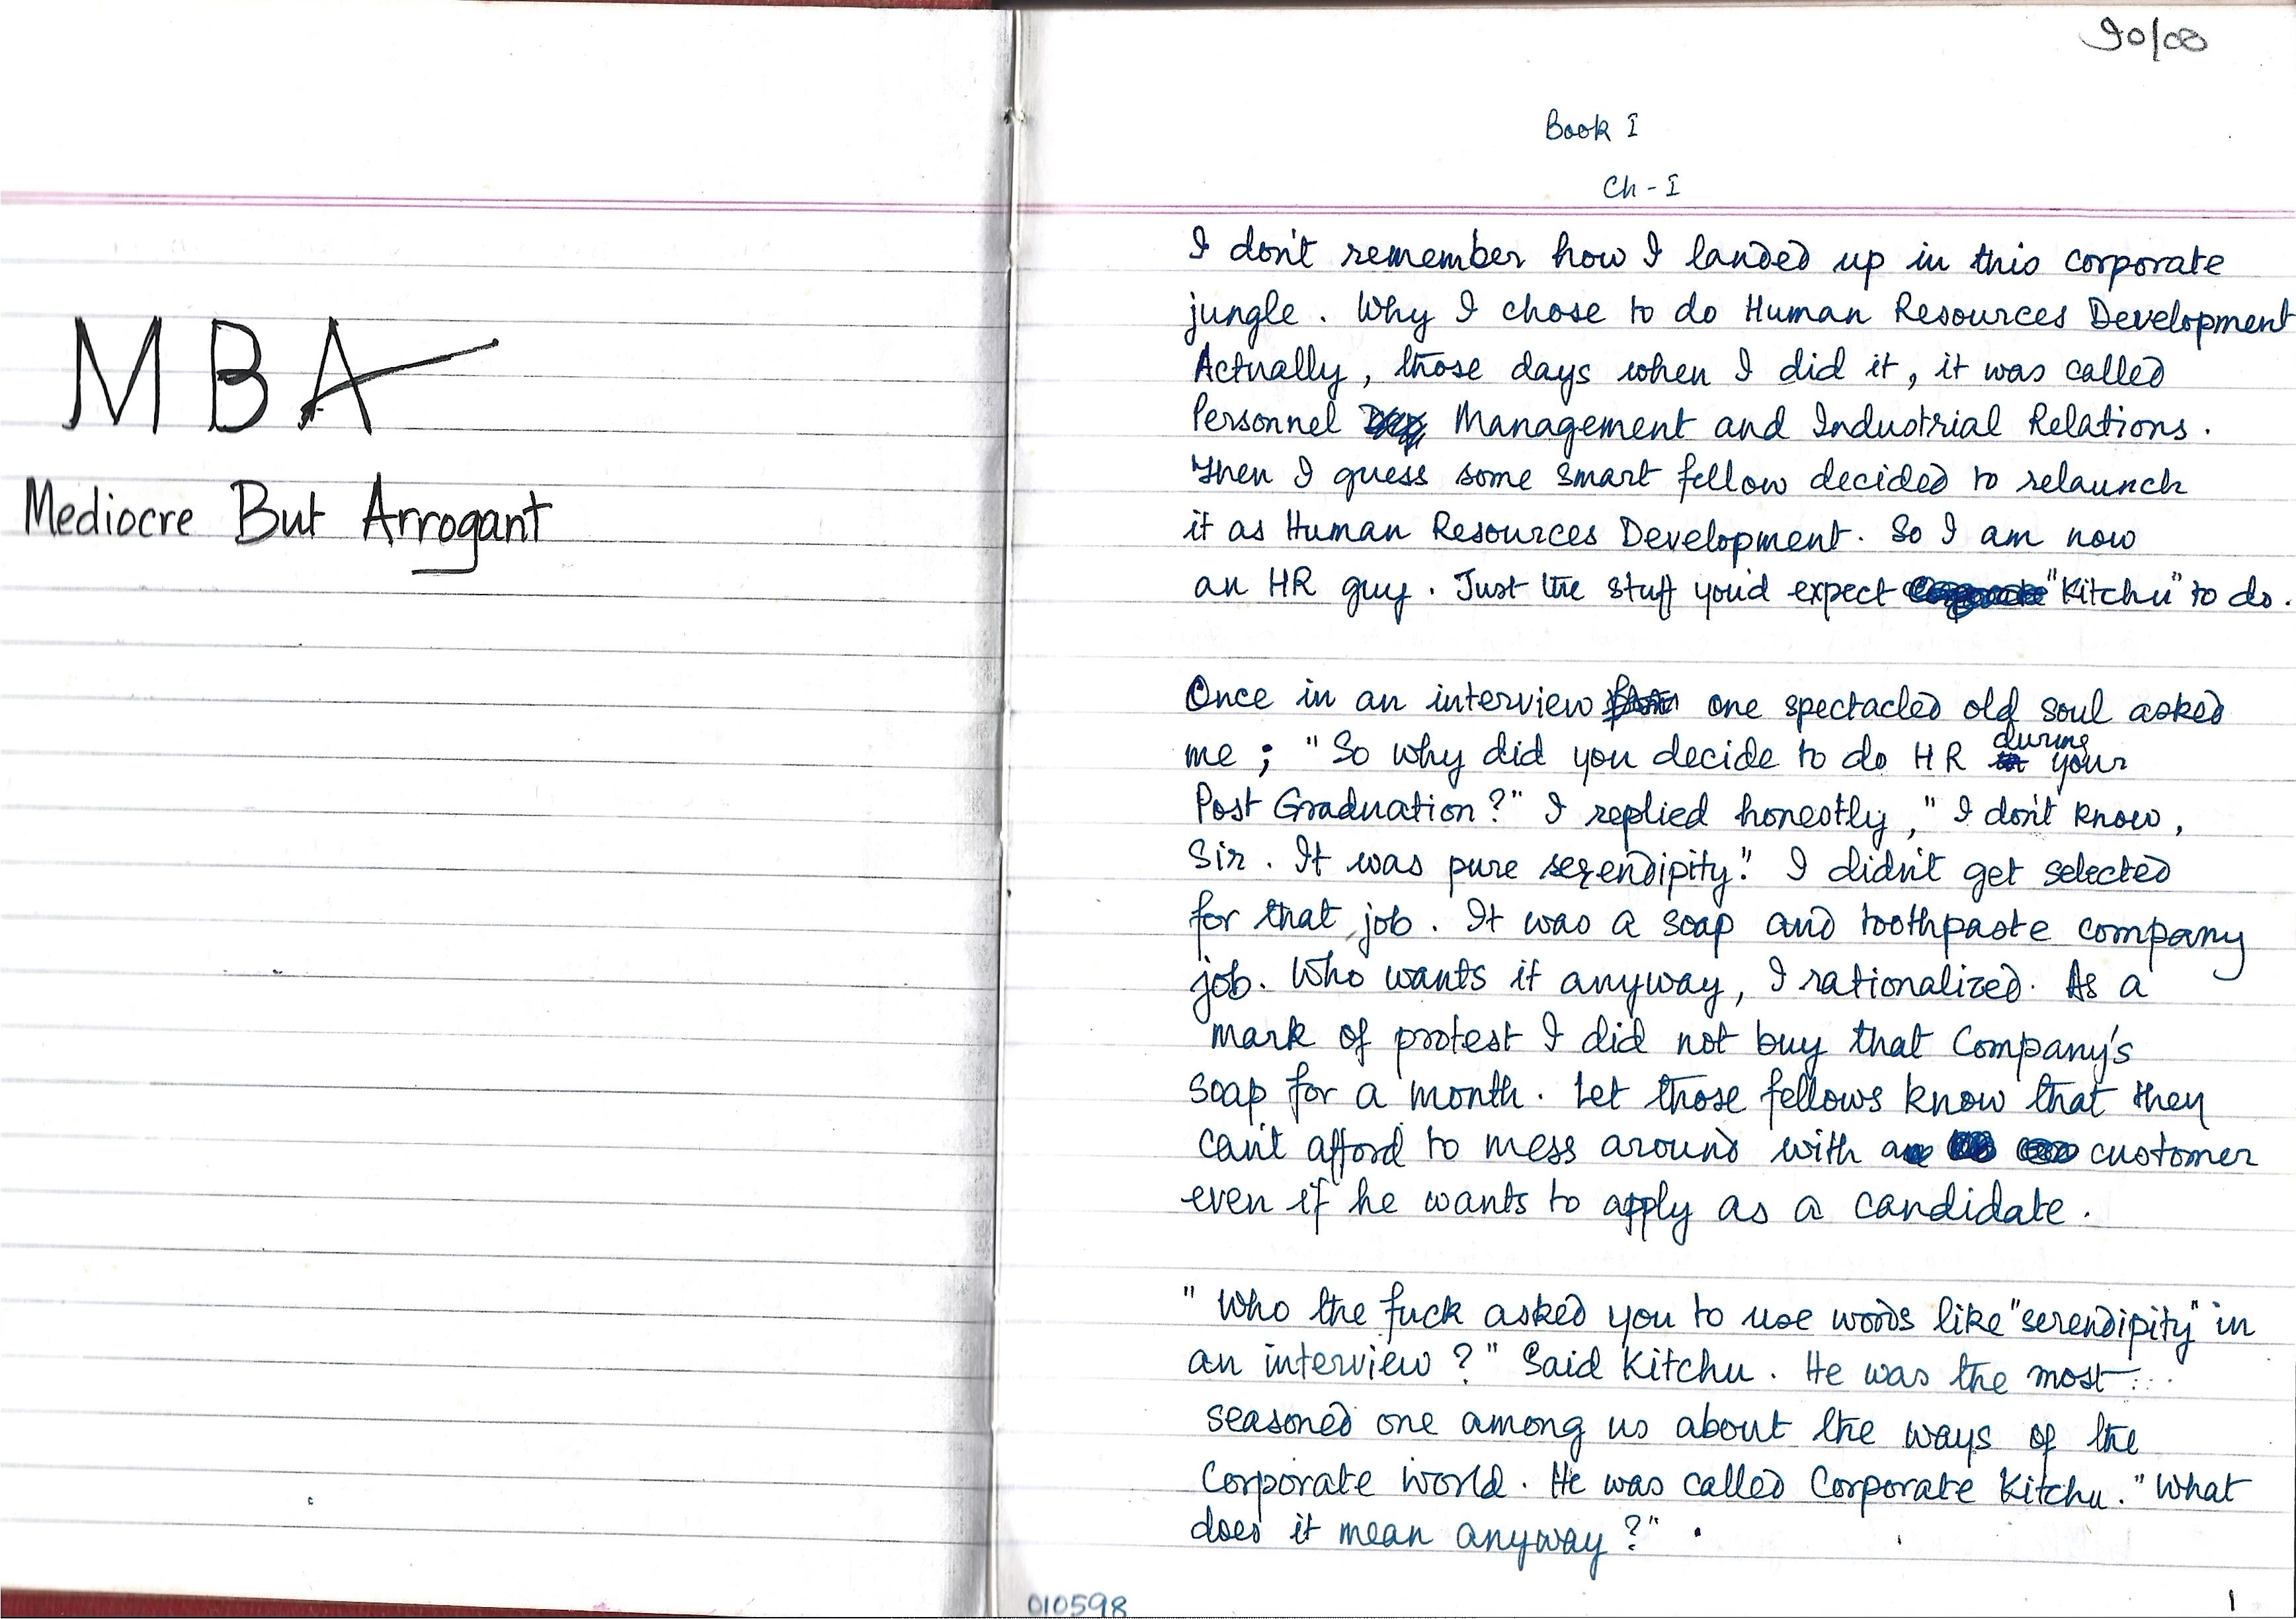 MBA
Mediocre But Arrogant
90/08
Book I
Ch - I
I don't remember how I landed up in this corporate
jungle. Why I chose to do Human Resources Development
Actually, those days when I did it, it was called
Personnel Management and Industrial Relations.
Then I guess some smart fellow decided to relaunch
it as Human Resources Development. So I am now
an HR guy. Just the stuff you'd expect "Kitchu" to do.
Once in an interview one spectacled old soul asked
me; "So why did you decide to do HR during your
Post Graduation?" I replied honestly, "I don't know,
Sir. It was pure serendipity." I didn't get selected
for that job. It was a soap and toothpaste company
job. Who wants it anyway, I rationalized. As a
mark of protest I did not buy that Company's
soap for a month. Let those fellows know that they
can't afford to mess around with a customer
even if he wants to apply as a candidate.
"Who the fuck asked you to use words like "serendipity" in
an interview?" Said Kitchu. He was the most
seasoned one among us about the ways of the
Corporate world. He was called Corporate Kitchu. "What
does it mean anyway?"
010598
1